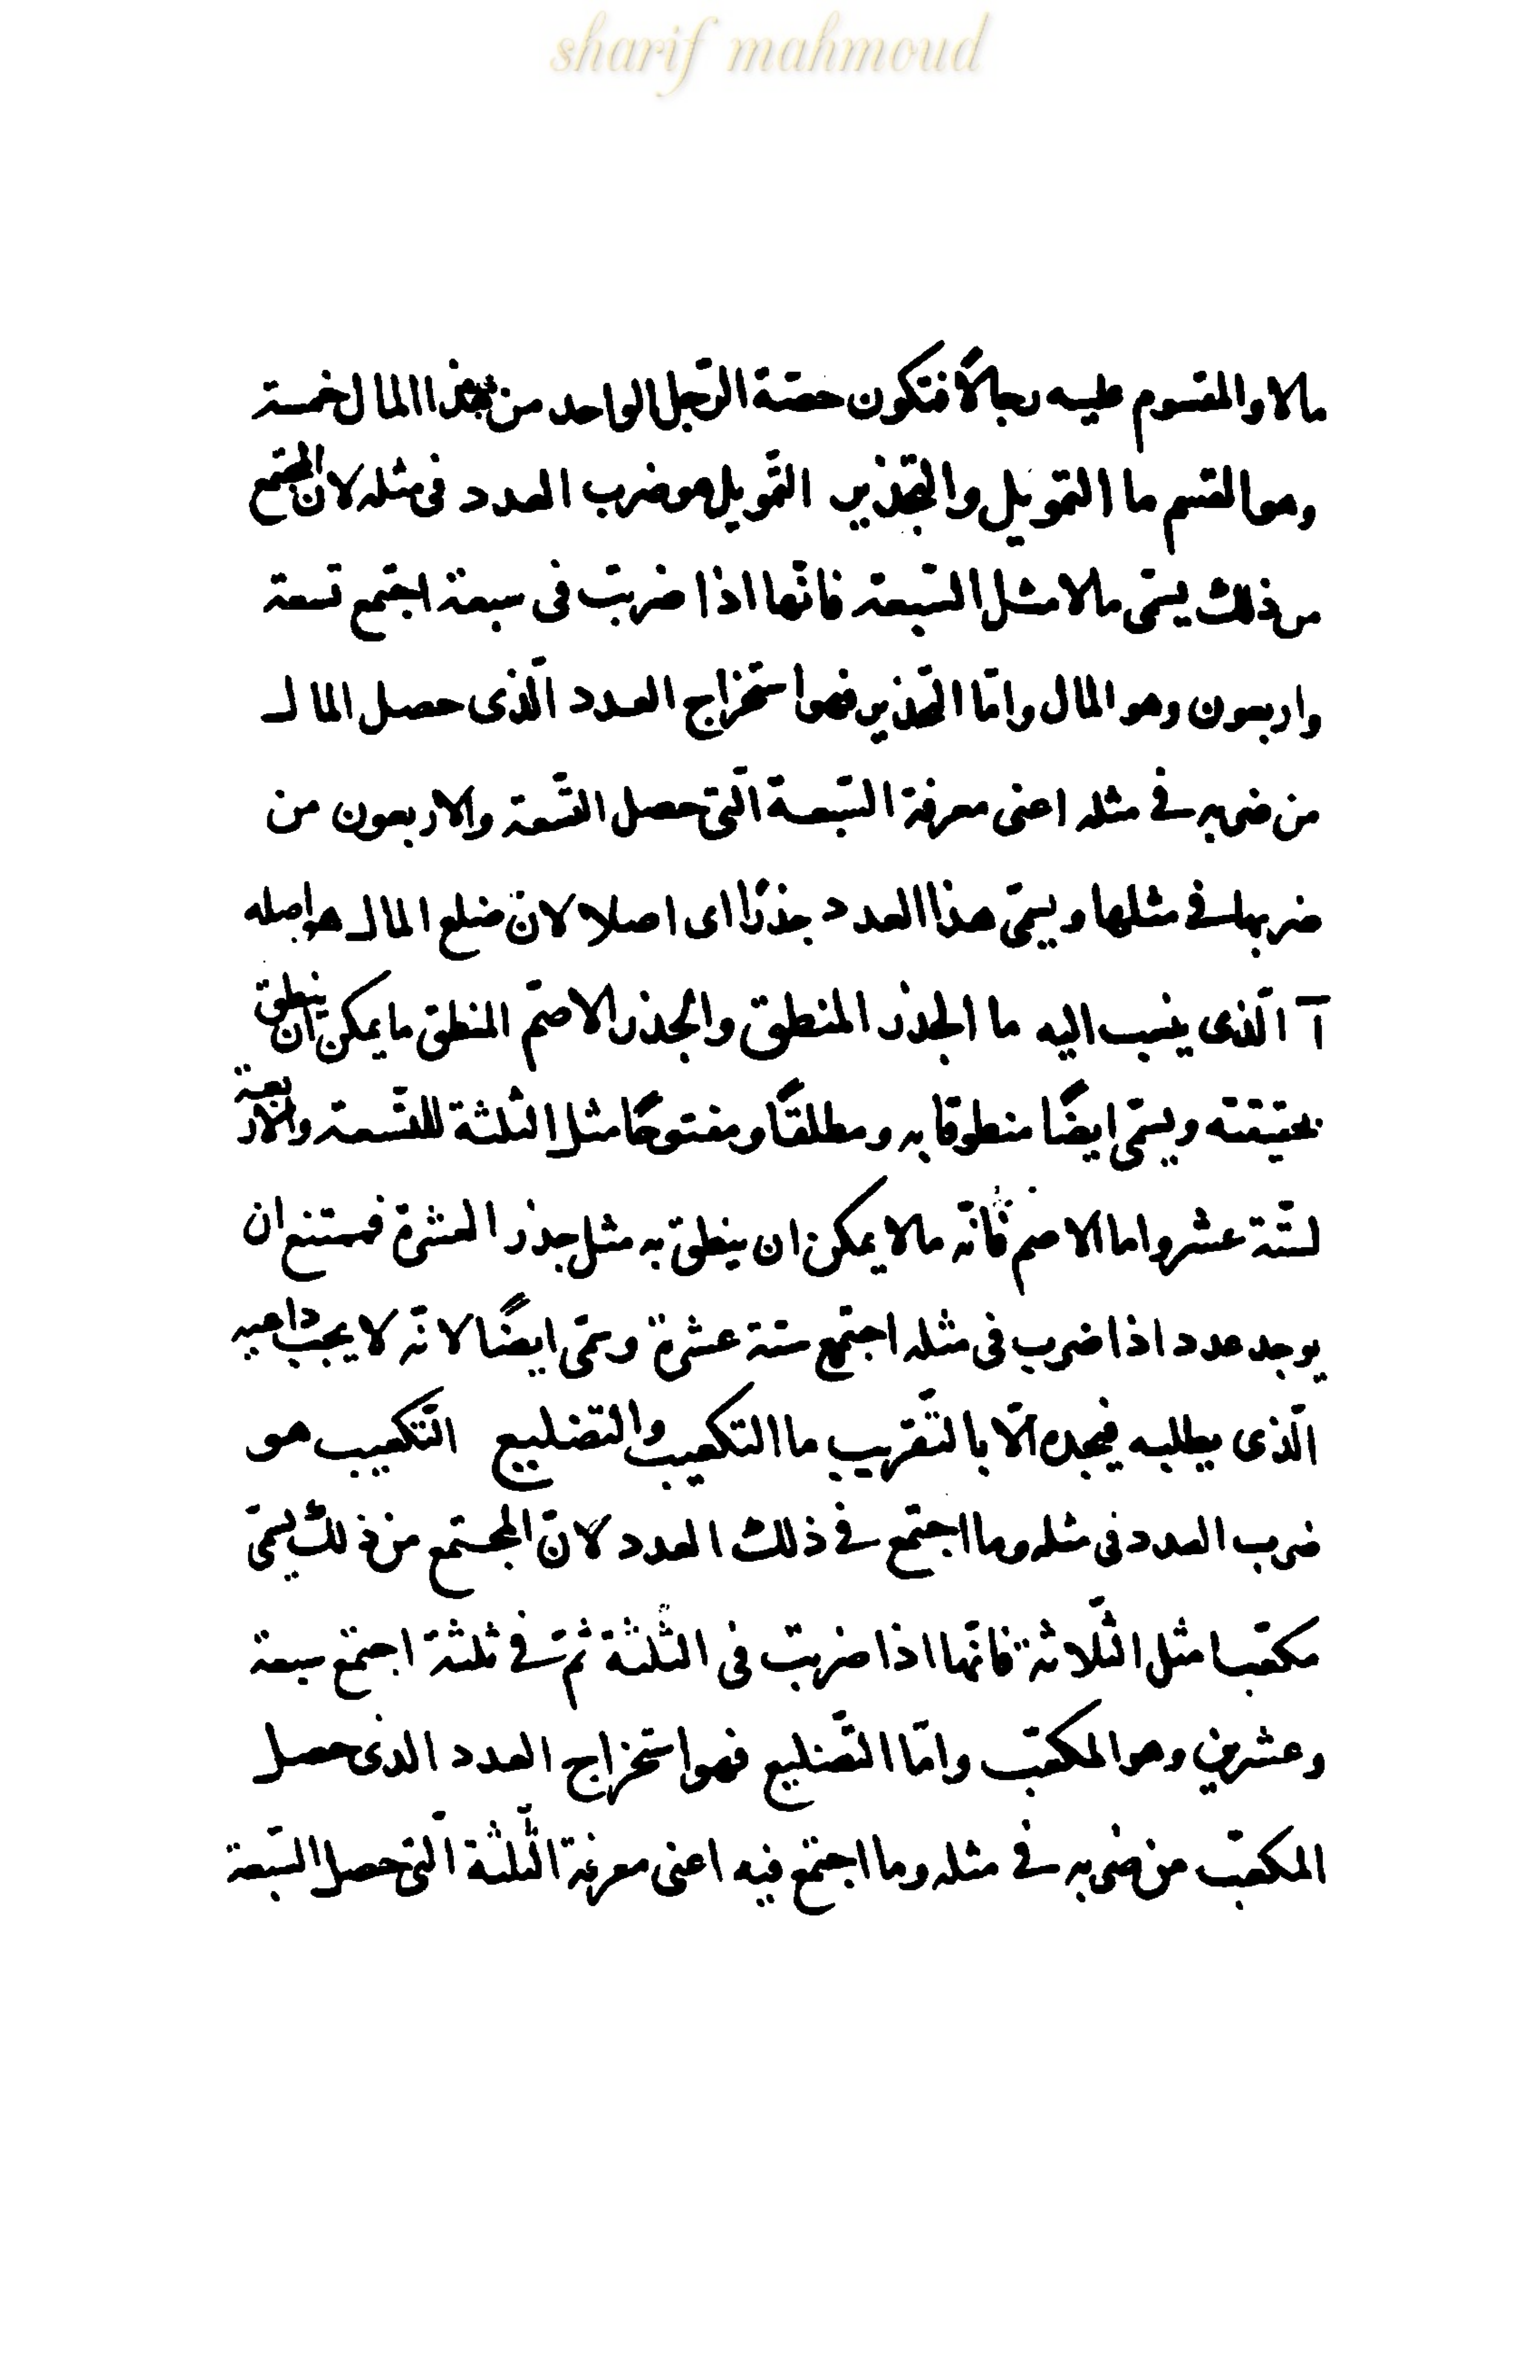 sharif mahmoud
مالا والمقسوم عليه رجالًا فتكون حصّة الرّجل الواحد من هذا المال خمسة
وهو القسم ما التمويل والتجذير التّمويل هو ضرب العدد فى مثله لان المجتمع
من ذلك يسمّى مالا مثل السّبعة فانّها اذا ضربت فى سبعة اجتمع تسعة
واربعون وهو المال وامّا التّجذير فهو استخراج العدد الّذى حصل المال
من ضربه فى مثله اعنى معرفة السّبعة الّتى حصل التّسعة والاربعون من
ضربها فى مثلها ويسمّى هذا العدد جذرًا اى اصلا لانّ ضلع المال هو اصله
آ الّذى ينسب اليه ما الجذر المنطق والجذر الاصمّ المنطق ما يمكن ان ينطق
بحقيقته ويسمّى ايضًا منطوقا به ومطلقًا ومفتوحًا مثل الثّلثة للتّسعة والاربعة
لستّة عشر واما الاصم فانّه مالا يمكن ان ينطق به مثل جذر العشرة فممتنع ان
يوجد عدد اذا ضرب فى مثله اجتمع ستة عشرة وسمّى ايضًا لانّه لا يجب داعيه
الّذى يطلبه فيجده الّا بالتّقريب ما التكعيب والتضليع التّكعيب هو
ضرب العدد فى مثله وما اجتمع فى ذلك العدد لانّ المجتمع من ذلك يسمّى
مكعّبا مثل الثّلاثة فانّها اذا ضربت فى الثّلثة ثمّ فى ثلثة اجتمع سبعة
وعشرين وهو المكعّب وامّا التّضليع فهو استخراج العدد الذى حصل
المكعّب من ضربه فى مثله وما اجتمع فيه اعنى معرفة الثّلثة الّتى حصل السّبعة